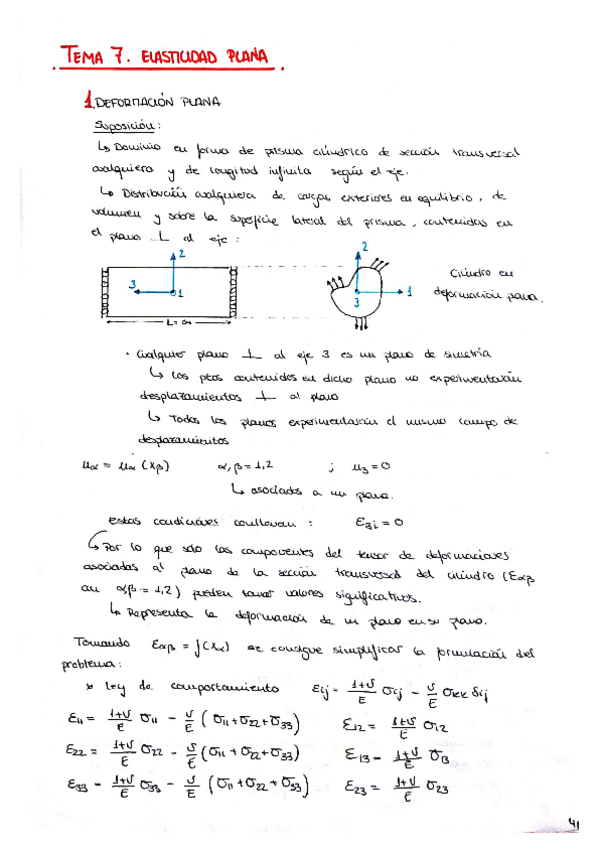 TEMA 7. ELASTICIDAD PLANA
1. DEFORMACIÓN PLANA
Suposición:
↳ Dominio en forma de prisma cilíndrico de sección transversal
cualquiera y de longitud infinita según el eje.
↳ Distribución cualquiera de cargas exteriores en equilibrio, de
volumen y sobre la superficie lateral del prisma, contenidas en
el plano ⊥ al eje:
2
3
1
L=∞
2
1
3
Cilindro en
deformación plana.
· Cualquier plano ⊥ al eje 3 es un plano de simetría
↳ Los ptos contenidos en dicho plano no experimentarán
desplazamientos ⊥ al plano
↳ Todos los planos experimentarán el mismo campo de
desplazamientos
uα = uα (xβ) α,β = 1,2 ; u3 = 0
↳ asociados a un plano.
estas condiciones conllevan: ε3i = 0
↳ Por lo que sólo las componentes del tensor de deformaciones
asociadas al plano de la sección transversal del cilindro (εαβ
con α,β = 1,2) pueden tomar valores significativos.
↳ Representa la deformación de un plano en su plano.
Tomando εαβ = f(xα) se consigue simplificar la formulación del
problema:
» Ley de comportamiento εij = 1+ν/E σij - ν/E σkk δij
ε11 = 1+ν/E σ11 - ν/E (σ11+σ22+σ33) ε12 = 1+ν/E σ12
ε22 = 1+ν/E σ22 - ν/E (σ11+σ22+σ33) ε13 = 1+ν/E σ13
ε33 = 1+ν/E σ33 - ν/E (σ11+σ22+σ33) ε23 = 1+ν/E σ23
41